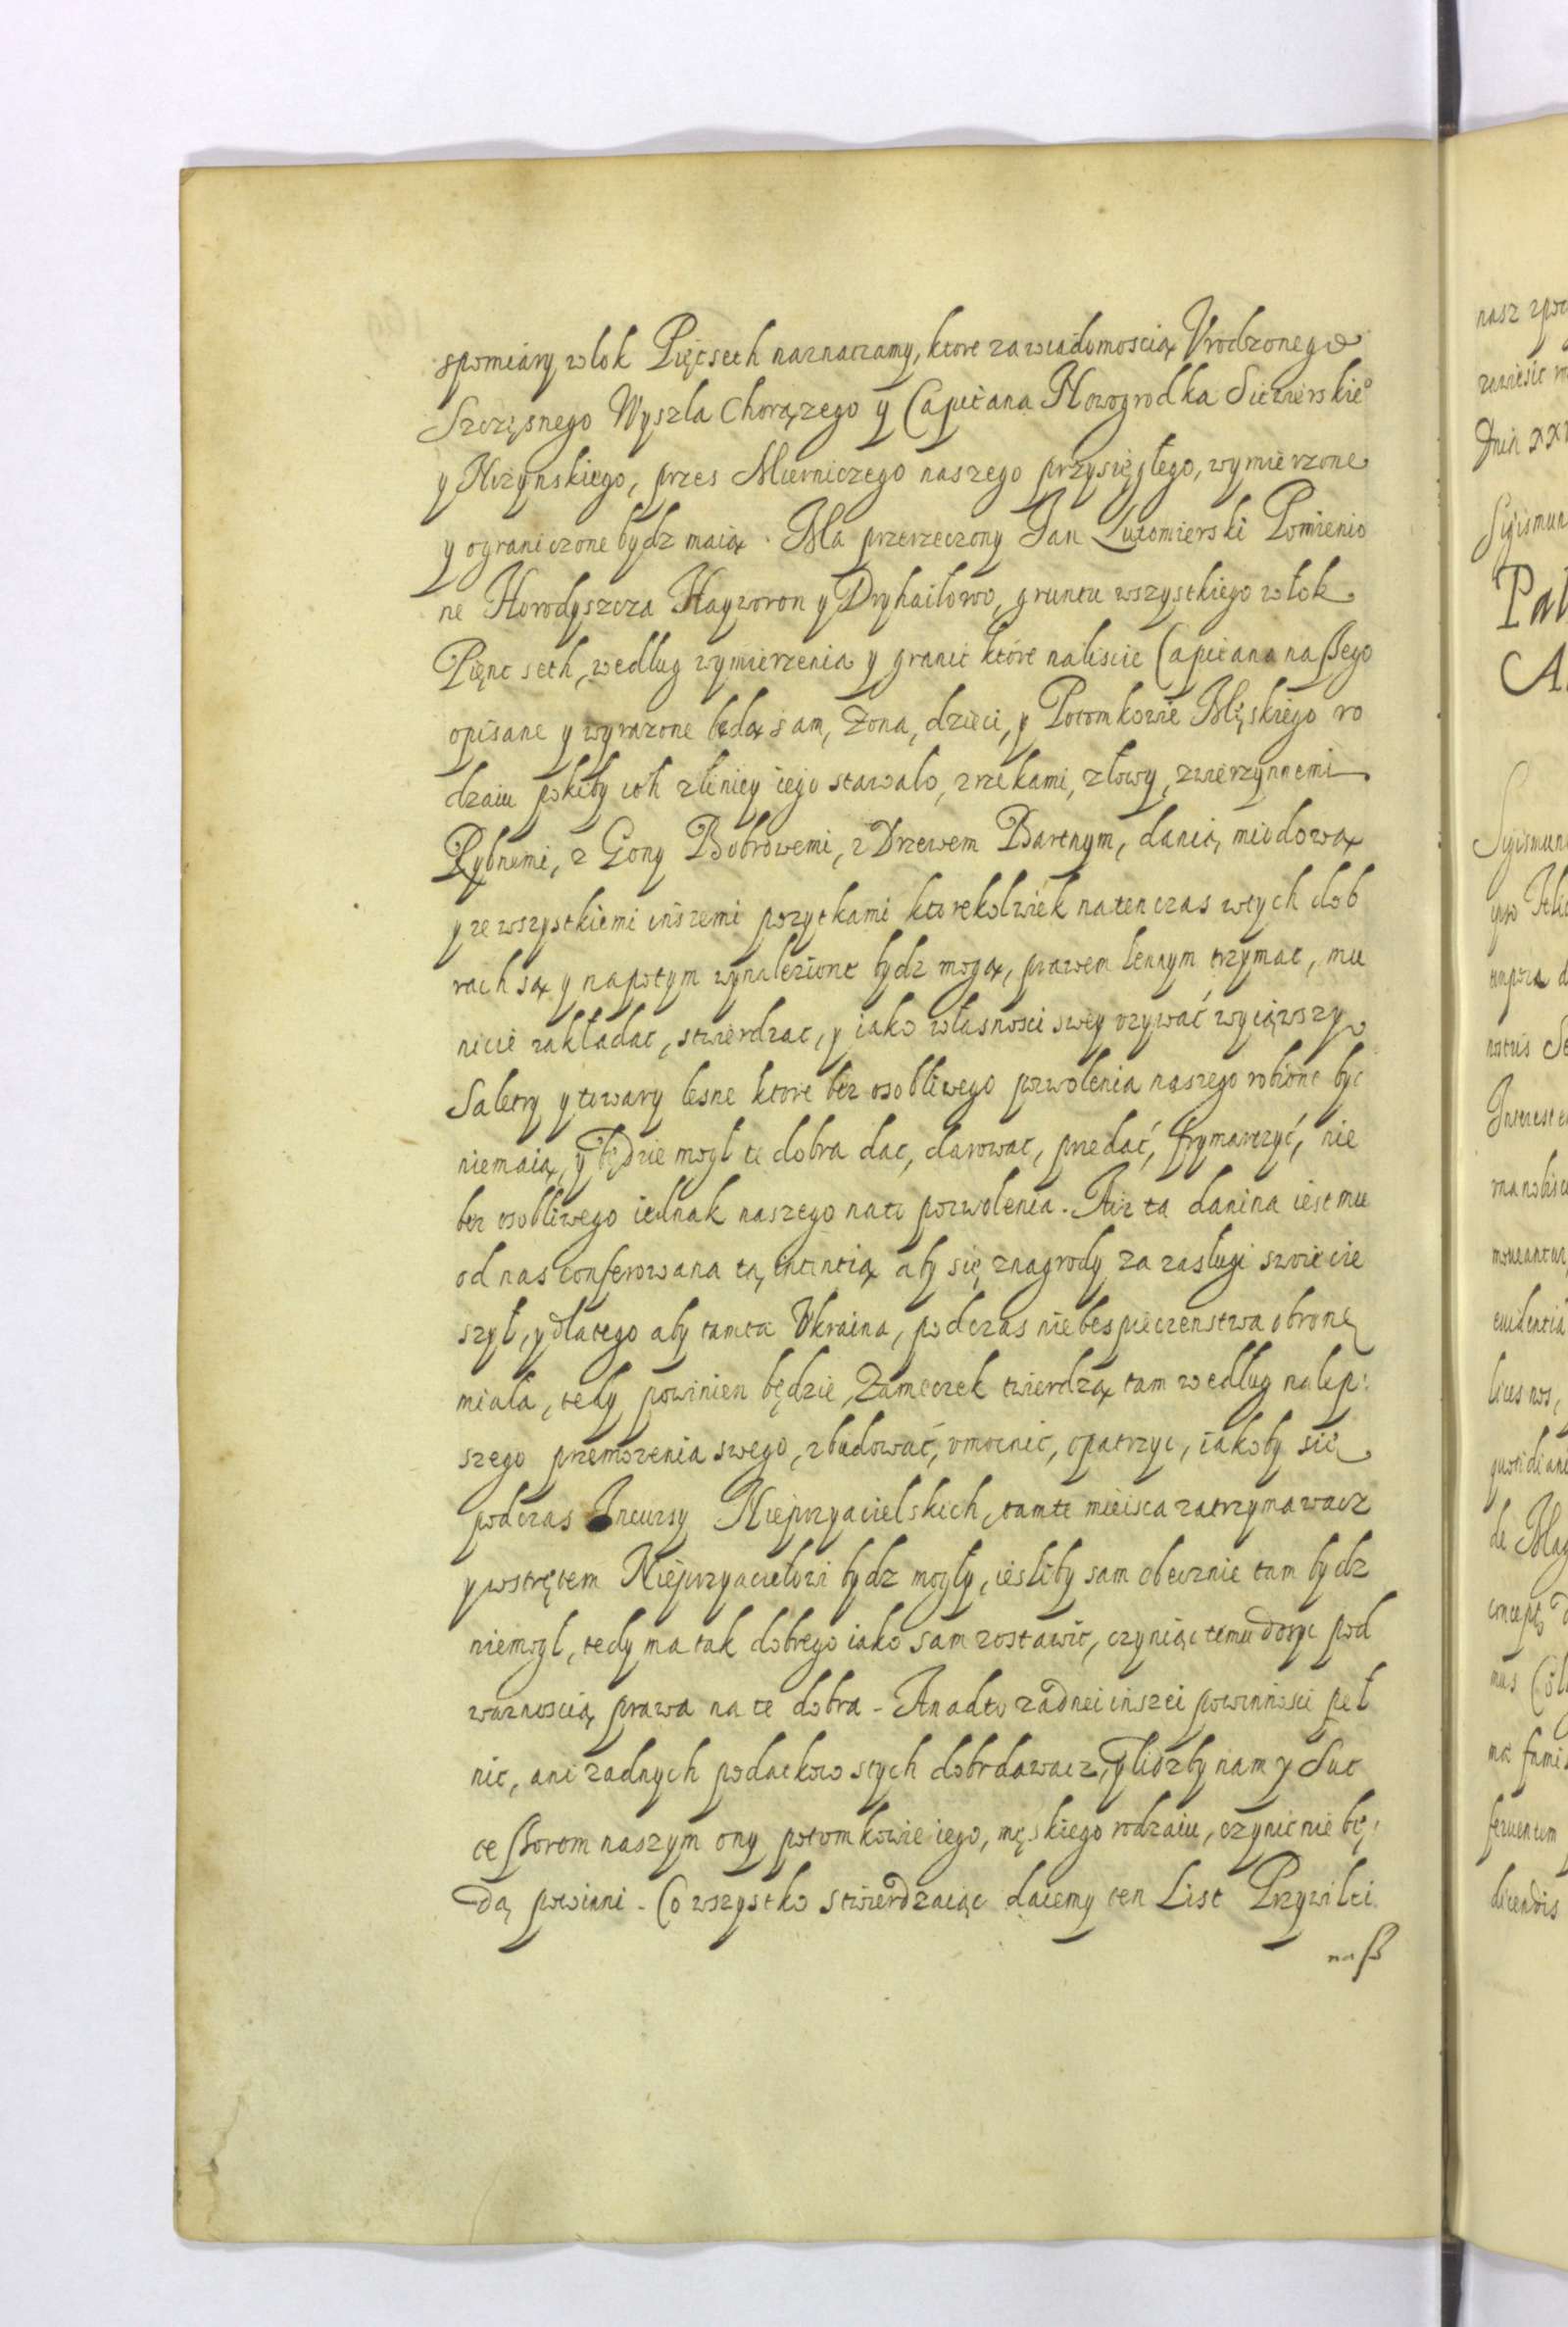 spomiary wlok Pięcseth naznaczamy, ktore zawiadomoscią Vrodzonego
Szczęsnego Wyszla Chorązego y Capitana Nowogrodka Siewierskie°
y Nizynskiego, przes Mierniczego naszego przysięgłego, wymierzone
y ograniczone bydz maią. Ma przerzeczony Jan Lutomierski Pomienio
ne Horodyszcza Hayworon y Dryhailowo, gruntu wszystkiego włok
Pięnc seth, wedlug wymierzenia y granic które naliscie Capitana naßego
opisane y wyrazone będą sam, Zona, dzieci, y Potomkowie Męskiego ro
dzaiu pokiby ich zliniey iego stawalo, z rzekami, złowy, zwierzynnemi
Rybnemi, z Gony Bobrowemi, z Drzewem Bartnym, danią miodową
y ze wszystkiemi inszemi pozytkami ktorekolwiek natenczas wtych dob
rach są y napotym wynalezione bydz mogą, prawem lennym trzymac, mu
nicie zakładac, stwierdzac, y iako własnosci swey vzywać wyiąwszy
Saletry y towary lesne ktore bez osobliwego pozwolenia naszego robione byc
niemaią, y będzie mogl te dobra dac, darowac, przedać, frymarczyć, nie
bez osobliwego iednak naszego nato pozwolenia. Aiz ta danina iest mu
od nas conferowana tą intintią aby się znagrody za zaslugi swoie cie
szył, y dlatego aby tamta Vkraina, podczas niebespieczenstwa obronę
miala, tedy powinien będzie Zameczek twierdzą tam wedlug nalep:
szego przemozenia swego, zbudować, vmocnic, opatrzyc, iakoby się
podczas Incursy Nieprzyacielskich, tamte mieisca zatrzymawacz
y wstrętem Nieprzyacielowi bydz mogły, iesliby sam obecznie tam bydz
niemogl, tedy ma tak dobrego iako sam zostawic, czyniąc temu dosyc pod
waznoscią prawa na te dobra - Anadto zadnei inszei powinnosci peł
nic, ani zadnych podatkow stych dobr dawacz, y liczby nam y Suc
ceßorom naszym ony potomkowie iego, męskiego rodzaiu, czynic nie bę:
dą powinni. Co wszystko stwierdzaiąc daiemy ten List Przywilei
naß
nasz zpo
zawiesic
Dnia XX
Sigismun
Pal
A
Sigismun
tempora d
nostris Se
Interest
mouantur
euidentia
lices nos,
quotidian
de Mag
concept
feruentem
dicendis